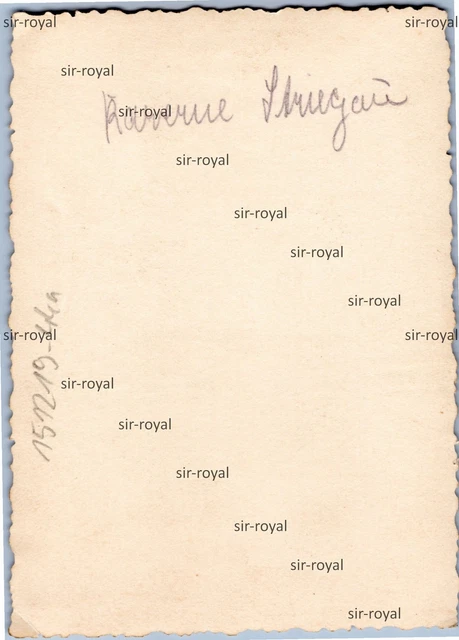 sir-royal sir-royal
sir-royal
Kaserne Striegau
sir-royal
sir-royal
sir-royal
sir-royal
sir-royal
sir-royal sir-royal
sir-royal
151219
sir-royal
sir-royal
sir-royal
sir-royal
sir-royal